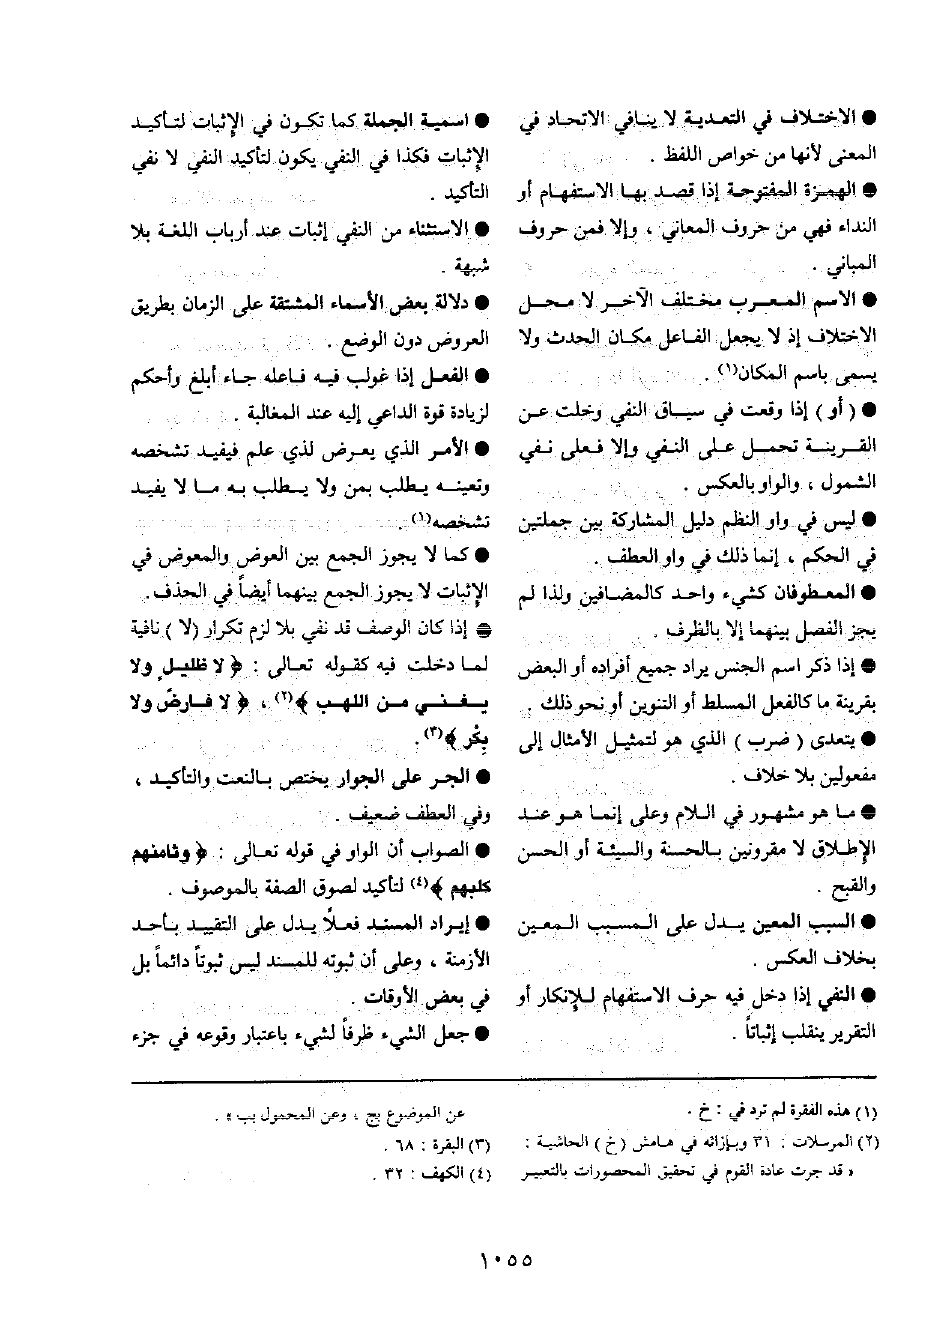 ● الاختلاف في التعدية لا ينافي الاتحاد في
المعنى لأنها من خواص اللفظ .
● الهمزة المفتوحة إذا قصد بها الاستفهام أو
النداء فهي من حروف المعاني ، وإلا فمن حروف
المباني .
● الاسم المعرب مختلف الآخر لا محل
الاختلاف إذ لا يجعل الفاعل مكان الحدث ولا
يسمى باسم المكان(١) .
● ( أو ) إذا وقعت في سياق النفي وخلت عن
القرينة تحمل على النفي وإلا فعلى نفي
الشمول ، والواو بالعكس .
● ليس في واو النظم دليل المشاركة بين جملتين
في الحكم ، إنما ذلك في واو العطف .
● المعطوفان كشيء واحد كالمضافين ولذا لم
يجز الفصل بينهما إلا بالظرف .
● إذا ذكر اسم الجنس يراد جميع أفراده أو البعض
بقرينة ما كالفعل المسلط أو التنوين أو نحو ذلك .
● يتعدى ( ضرب ) الذي هو لتمثيل الأمثال إلى
مفعولين بلا خلاف .
● ما هو مشهور في اللام وعلى إنما هو عند
الإطلاق لا مقرونين بالحسنة والسيئة أو الحسن
والقبح .
● السبب المعين يدل على المسبب المعين
بخلاف العكس .
● النفي إذا دخل فيه حرف الاستفهام للإنكار أو
التقرير ينقلب إثباتاً .
● اسمية الجملة كما تكون في الإثبات لتأكيد
الإثبات فكذا في النفي يكون لتأكيد النفي لا نفي
التأكيد .
● الاستثناء من النفي إثبات عند أرباب اللغة بلا
شبهة .
● دلالة بعض الأسماء المشتقة على الزمان بطريق
العروض دون الوضع .
● الفعل إذا غولب فيه فاعله جاء أبلغ وأحكم
لزيادة قوة الداعي إليه عند المغالبة .
● الأمر الذي يعرض لذي علم فيفيد تشخصه
وتعينه يطلب بمن ولا يطلب به ما لا يفيد
تشخصه(١) .
● كما لا يجوز الجمع بين العوض والمعوض في
الإثبات لا يجوز الجمع بينهما أيضاً في الحذف .
● إذا كان الوصف قد نفي بلا لزم تكرار (لا ) نافية
لما دخلت فيه كقوله تعالى : ﴿ لا ظليلٍ ولا
يغني من اللهب ﴾(٢) ، ﴿ لا فارضٌ ولا
بِكْر ﴾(٣) .
● الجر على الجوار يختص بالنعت والتأكيد ،
وفي العطف ضعيف .
● الصواب أن الواو في قوله تعالى : ﴿ وثامنهم
كلبهم ﴾(٤) لتأكيد لصوق الصفة بالموصوف .
● إيراد المسند فعلاً يدل على التقييد بأحد
الأزمنة ، وعلى أن ثبوته للمسند ليس ثبوتاً دائماً بل
في بعض الأوقات .
● جعل الشيء ظرفاً لشيء باعتبار وقوعه في جزء
(١) هذه الفقرة لم ترد في : خ .
(٢) المرسلات : ٣١ وبإزائه في هامش ( خ ) الحاشية :
« قد جرت عادة القوم في تحقيق المحصورات بالتعبير
عن الموضوع بج ، وعن المحمول بب » .
(٣) البقرة : ٦٨ .
(٤) الكهف : ٣٢ .
١٠٥٥